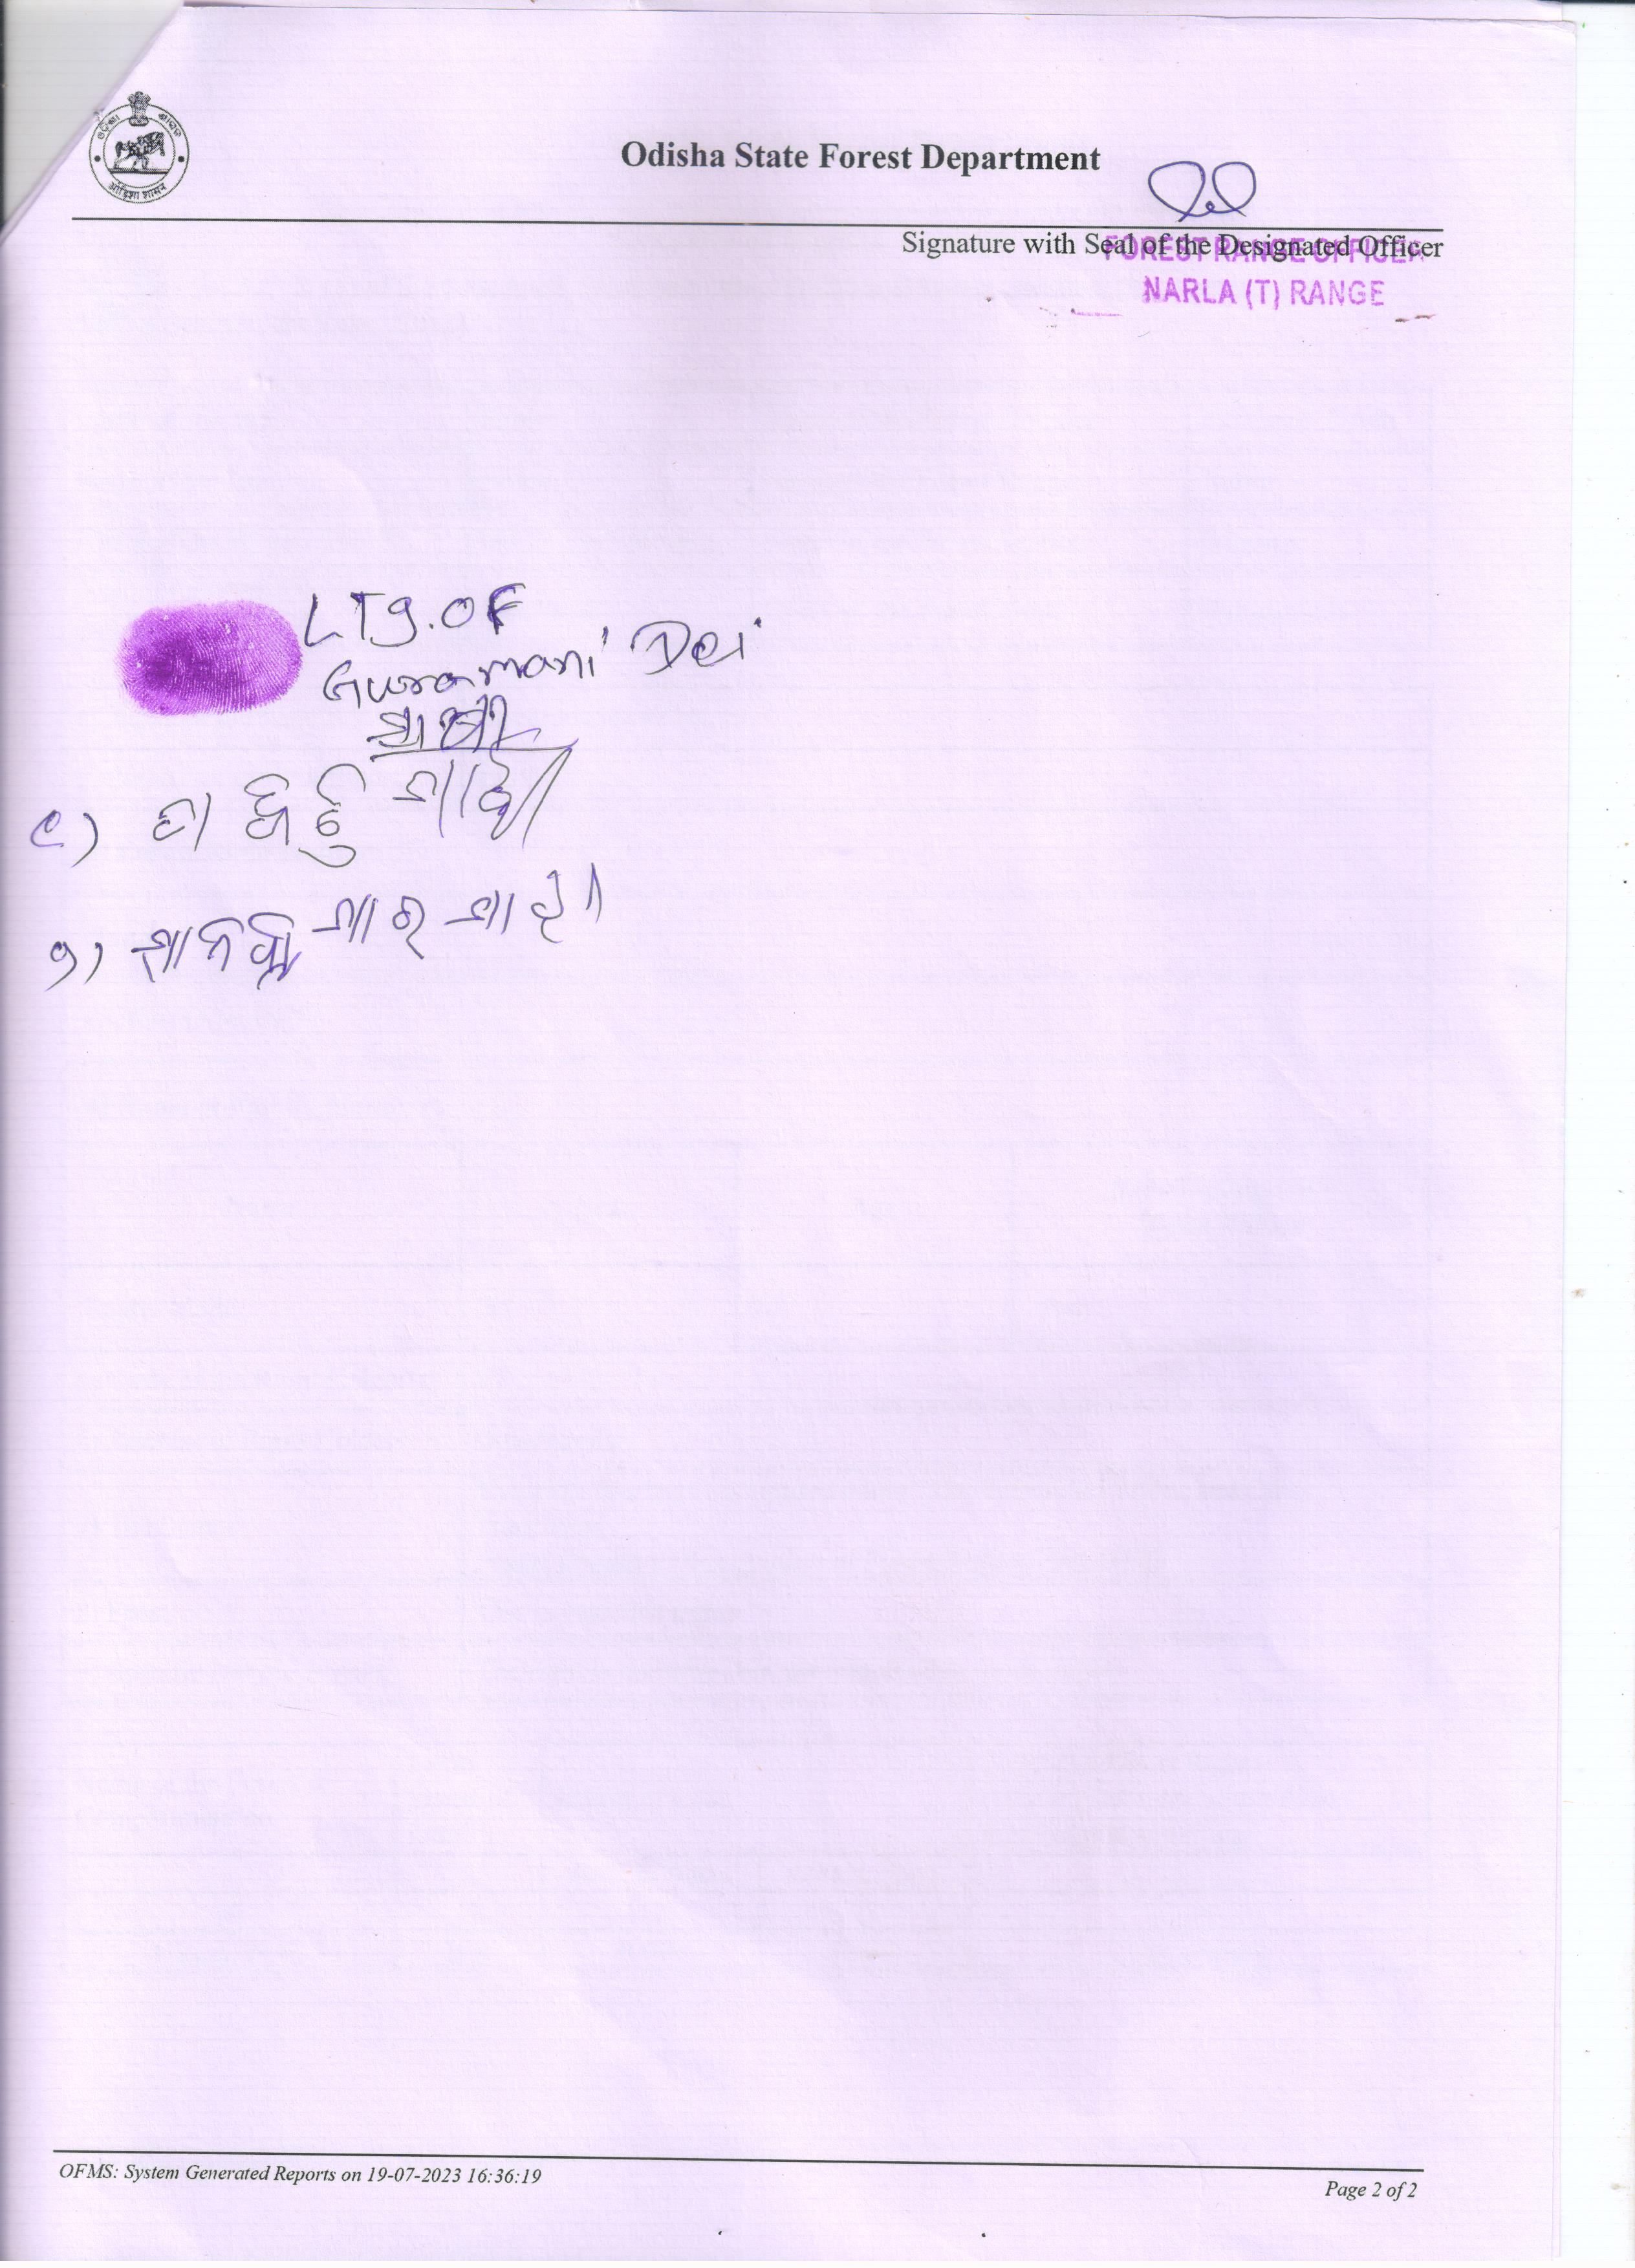 ଓଡ଼ିଶା ଶାସନ
ओड़िशा शासन
Odisha State Forest Department
Signature with Seal of the Designated Officer
FOREST RANGE OFFICER
NARLA (T) RANGE
LTI. OF
Guramani Dei
ସାକ୍ଷୀ
୧)
୨)
OFMS: System Generated Reports on 19-07-2023 16:36:19
Page 2 of 2